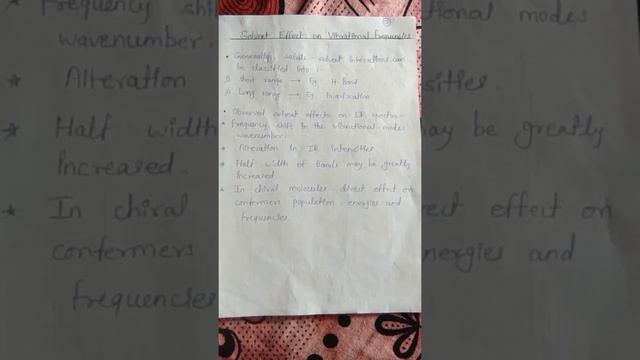 Solvent Effect on Vibrational Frequencies
Generally, solute-solvent interactions can
be classified into :-
i) short range → Eg. H-Bond
ii) Long range → Eg. Polarization
Observed solvent effects on IR spectra-
Frequency shift in the vibrational modes
wavenumber.
Alteration in IR intensities
Half width of Bands may be greatly
increased.
In chiral molecules direct effect on
conformers population energies and
frequencies.
Frequency shif
tional modes
wavenumber.
Alteration
sities
Half width
may be greatly
increased.
In chiral
rect effect on
conformers
nergies and
frequencies